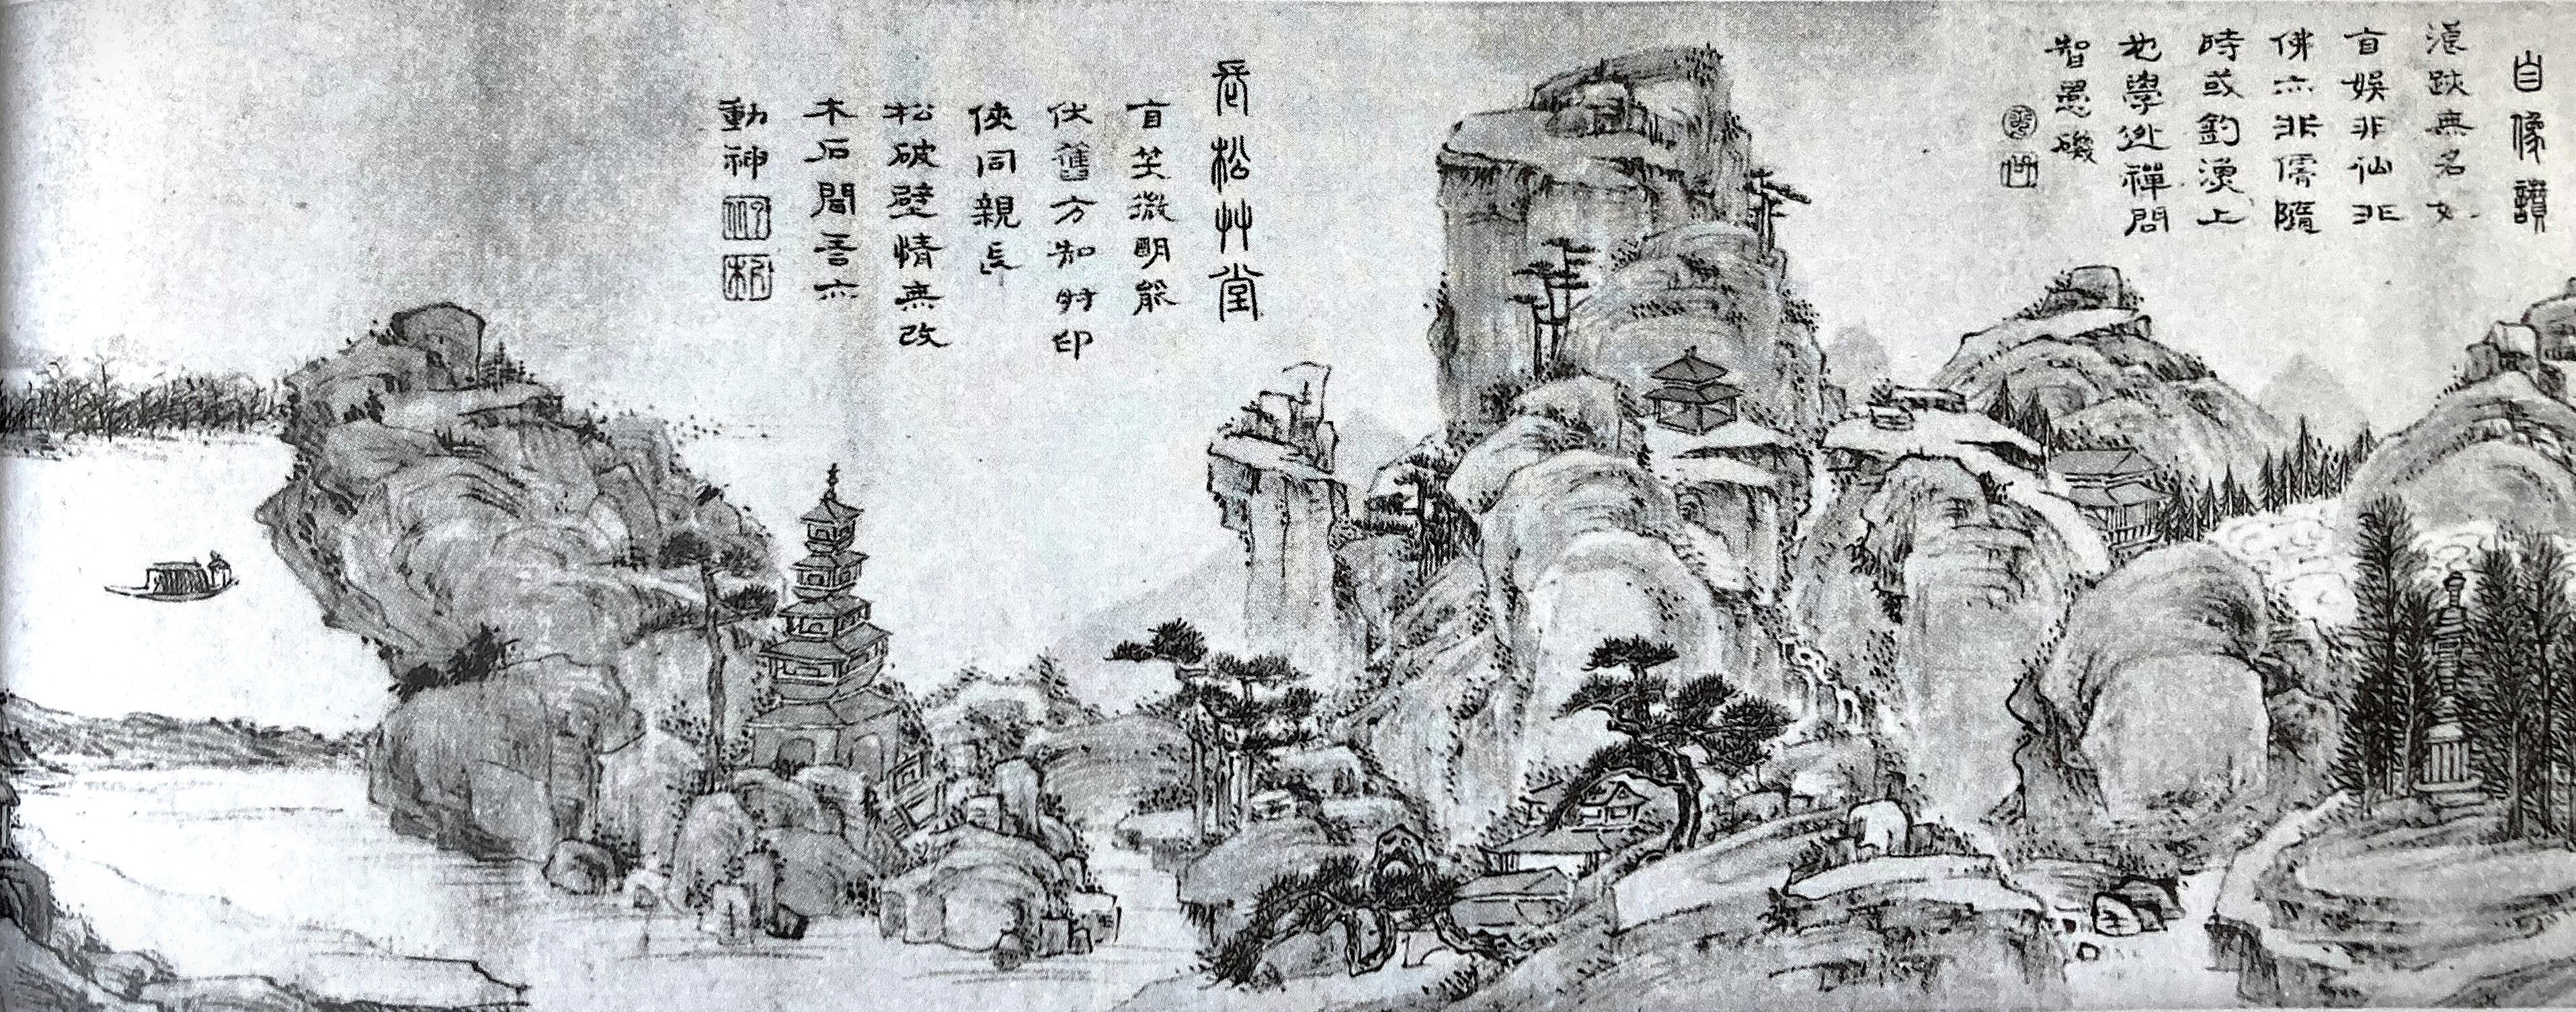 自像讚
無名
自娛非仙非
佛亦非儒隨
時或釣漁上
也學逃禪問
智愚磯
長松艸堂
自笑微明能
伏舊方知印
俠同親長
松破壁情無改
木石間吾亦
動神